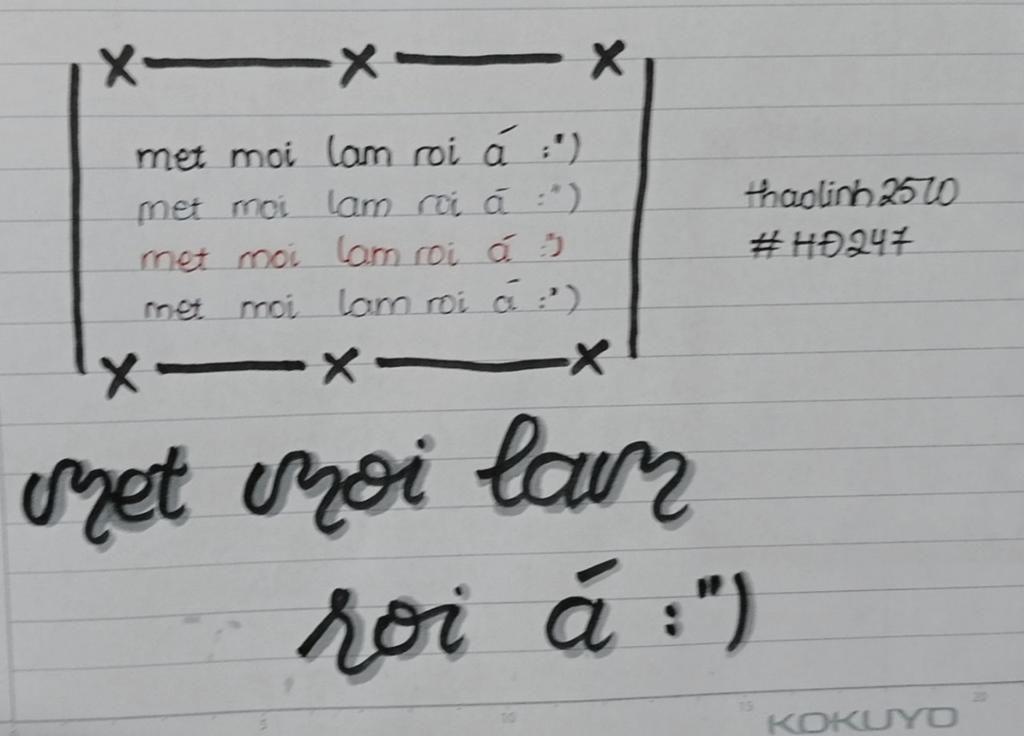 met moi lam roi á :")
met moi lam roi á :")
met moi lam roi á :")
met moi lam roi á :")
thaolinh2510
#HĐ247
met moi lam
roi á :")
5 10 15 20
KOKUYO